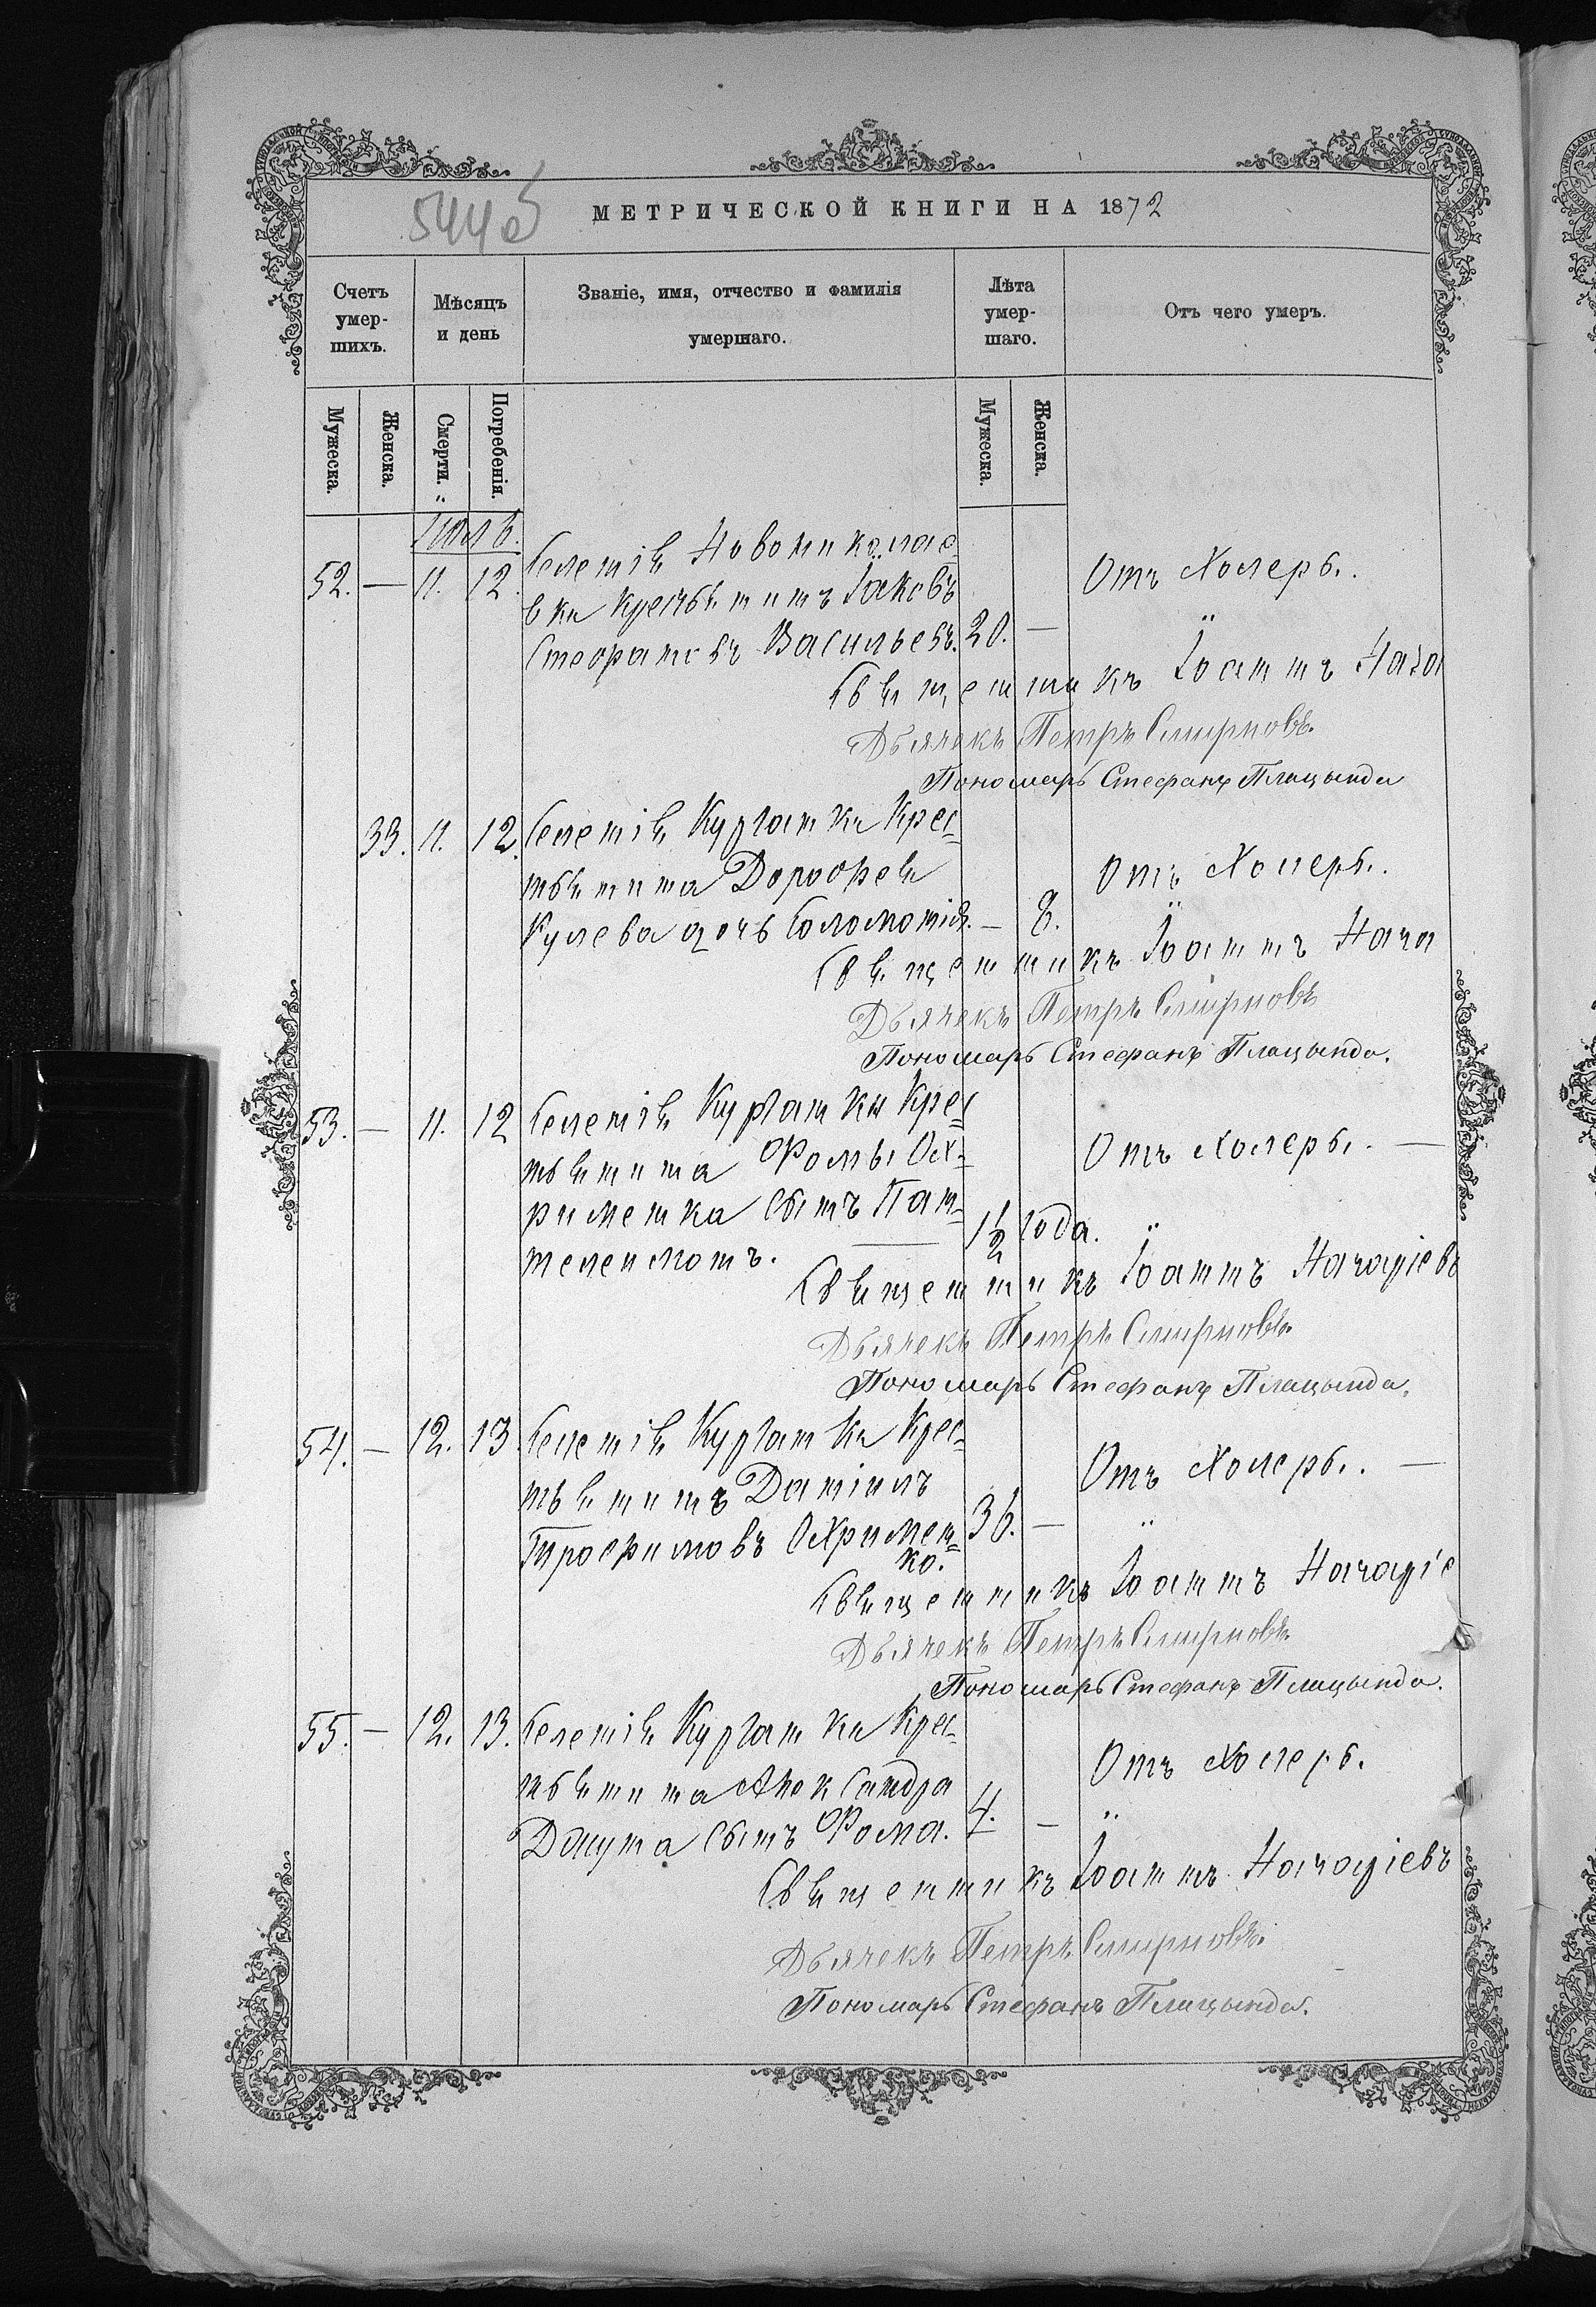 544об
МЕТРИЧЕСКОЙ КНИГИ НА 1872
Счетъ умер-шихъ.
Мѣсяцъ и день
Званіе, имя, отчество и фамилія умершаго.
Лѣта умер-шаго.
Отъ чего умеръ.
Мужеска.
Женска.
Смерти.
Погребенія.
Мужеска.
Женска.
Іюль.
52. — 11. 12. Селенія Новониколае-
вки Крестьянинъ Іаковъ Отъ Холеры.
Стефановъ Васильевъ. 20. — "
Священникъ Іоаннъ
Дьячекъ Петръ Смирновъ.
Пономарь Стефанъ Плацында
33. 11. 12. Селенія Курганки Крес-
тьянина Дорофея Отъ Холеры.
Кулева дочь Соломонія. — 8. "
Священникъ Іоаннъ
Дьячекъ Петръ Смирновъ
Пономарь Стефанъ Плацында.
53. — 11. 12 Селенія Курганки Крес
тьянина Фомы Ох- Отъ Холеры. —
рименка сынъ Пан-
телеимонъ. — 1 1/2 года. "
Священникъ Іоаннъ
Дьячекъ Петръ Смирновъ.
Пономарь Стефанъ Плацында.
54. — 12. 13 Селенія Курганки Крес-
тьянинъ Даніилъ Отъ Холеры. —
Трофимовъ Охримен- 36. — "
ко.
Священникъ Іоаннъ
Дьячекъ Петръ Смирновъ.
Пономарь Стефанъ Плацында.
55. — 12. 13. Селенія Курганки Крес-
тьянина Александра Отъ Холеры.
сынъ Фома. 4. — "
Священникъ Іоаннъ
Дьячекъ Петръ Смирновъ.
Пономарь Стефанъ Плацында.